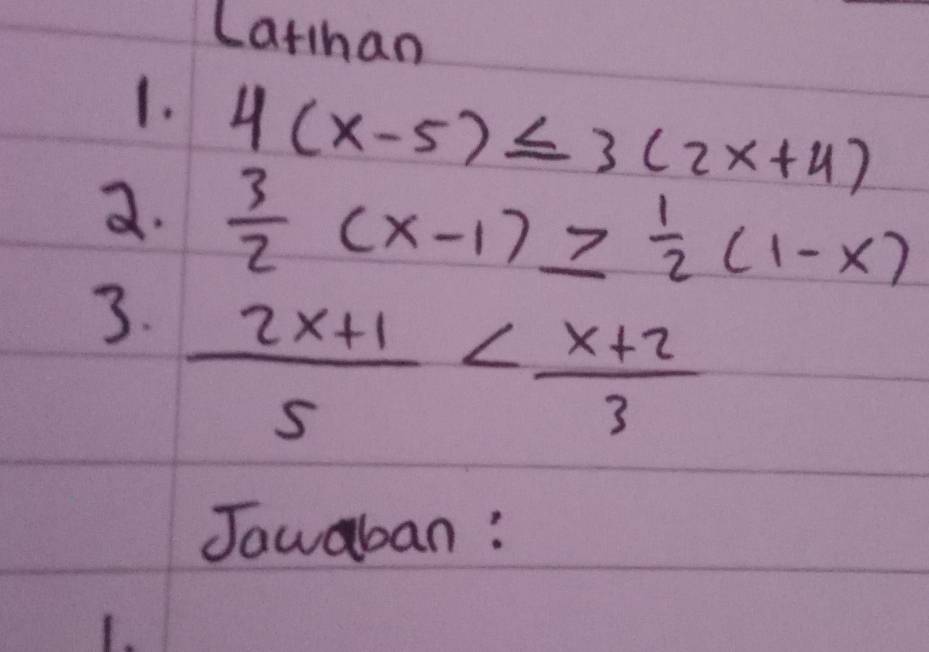 Latihan
1. 4(x-5) ≤ 3(2x+4)
2. 3/2 (x-1) ≥ 1/2 (1-x)
3. 2x+1/5 < x+2/3
Jawaban :
1.